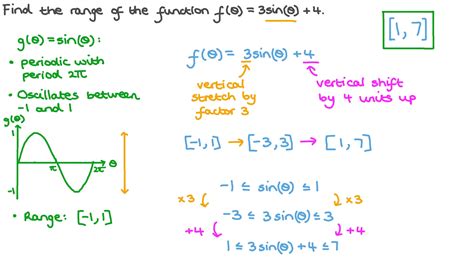 Find the range of the function f(θ) = 3sin(θ) + 4.
[1, 7]
g(θ) = sin(θ):
• periodic with
period 2π
• Oscillates between
-1 and 1
g(θ)
1
π
2π
θ
-1
• Range: [-1, 1]
f(θ) = 3sin(θ) + 4
vertical
stretch by
factor 3
vertical shift
by 4 units up
[-1, 1] → [-3, 3] → [1, 7]
-1 ≤ sin(θ) ≤ 1
×3 ×3
-3 ≤ 3sin(θ) ≤ 3
+4 +4
1 ≤ 3sin(θ) + 4 ≤ 7